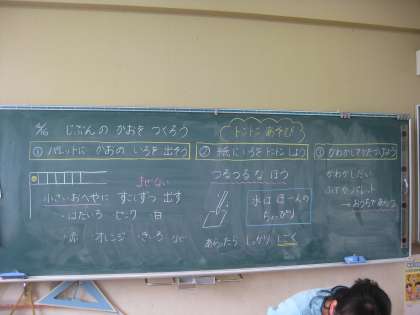 じぶんの かおを つくろう
トントン あそび
① パレットに かおの いろを 出そう
② 紙に いろを トントン しよう
③ かわかして かたづけよう
まぜない
小さい おへやに すこしずつ 出す
・はだいろ ピンク 白
・赤 オレンジ きいろ など
つるつるな ほう
水は ほーんの
ちょっぴり
あらったら しっかり ふく
かわかしたい
ふでやパレット
→ おうちで